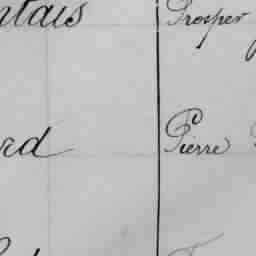 ntais Prosper
rd Pierre